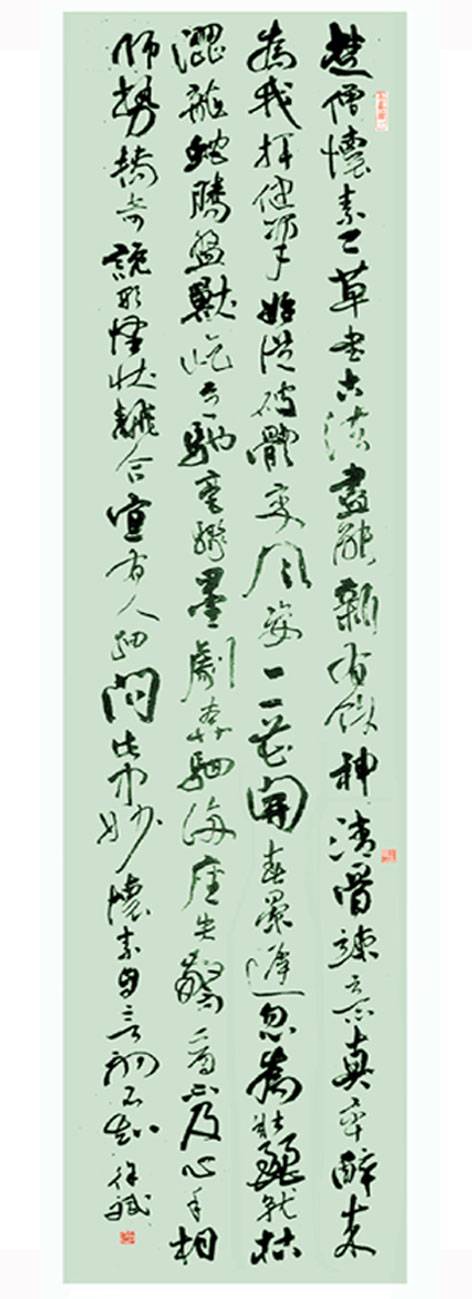 楚僧懷素工草書古法盡能新有餘神清骨竦意真率醉来
為我揮健筆始從破體變風姿一一花開春景遲忽為壯麗就枯
澀龍蛇騰盤獸屹立馳毫驟墨劇奔駟滿座失聲看不及心手相
師勢轉奇詭形怪狀翻合宜有人細問此中妙懷素自言初不知